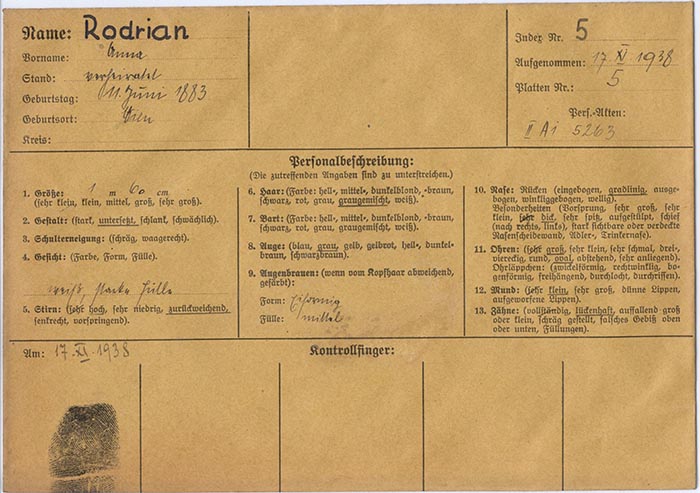 Name: Rodrian
Vorname: Anna
Stand: verheiratet
Geburtstag: 11. Juni 1883
Geburtsort: Wien
Kreis:
Index Nr. 5
Aufgenommen: 17 XI. 1938
Platten Nr.: 5
Pers.-Akten:
II Ai 5263
Personalbeschreibung:
(Die zutreffenden Angaben sind zu unterstreichen.)
1. Größe: 1 m 60 cm
(sehr klein, klein, mittel, groß, sehr groß).
2. Gestalt: (stark, untersetzt, schlank, schwächlich).
3. Schulterneigung: (schräg, waagerecht).
4. Gesicht: (Farbe, Form, Fülle).
weiß, starke Fülle
5. Stirn: (sehr hoch, sehr niedrig, zurückweichend,
senkrecht, vorspringend).
6. Haar: (Farbe: hell-, mittel-, dunkelblond, -braun,
schwarz, rot, grau, graugemischt, weiß).
7. Bart: (Farbe: hell-, mittel-, dunkelblond, -braun,
schwarz, rot, grau, graugemischt, weiß).
8. Auge: (blau, grau, gelb, gelbrot, hell-, dunkel-
braun, schwarzbraun).
9. Augenbrauen: (wenn vom Kopfhaar abweichend,
gefärbt):
Form:
Fülle: mittel
10. Nase: Rücken (eingebogen, gradlinig, ausge-
bogen, winkliggebogen, wellig).
Besonderheiten (Vorsprung, sehr groß, sehr
klein, sehr dick, sehr spitz, aufgestülpt, schief
(nach rechts, links), stark sichtbare oder verdeckte
Nasenscheidewand, Adler-, Trinkernase).
11. Ohren: (sehr groß, sehr klein, sehr schmal, drei-,
viereckig, rund, oval, abstehend, sehr anliegend).
Ohrläppchen: (zwickelförmig, rechtwinklig, bo-
genförmig, freihängend, durchlocht, durchrissen).
12. Mund: (sehr klein, sehr groß, dünne Lippen,
aufgeworfene Lippen).
13. Zähne: (vollständig, lückenhaft, auffallend groß
oder klein, schräg gestellt, falsches Gebiß oben
oder unten, Füllungen).
Am: 17. XI. 1938
Kontrollfinger: